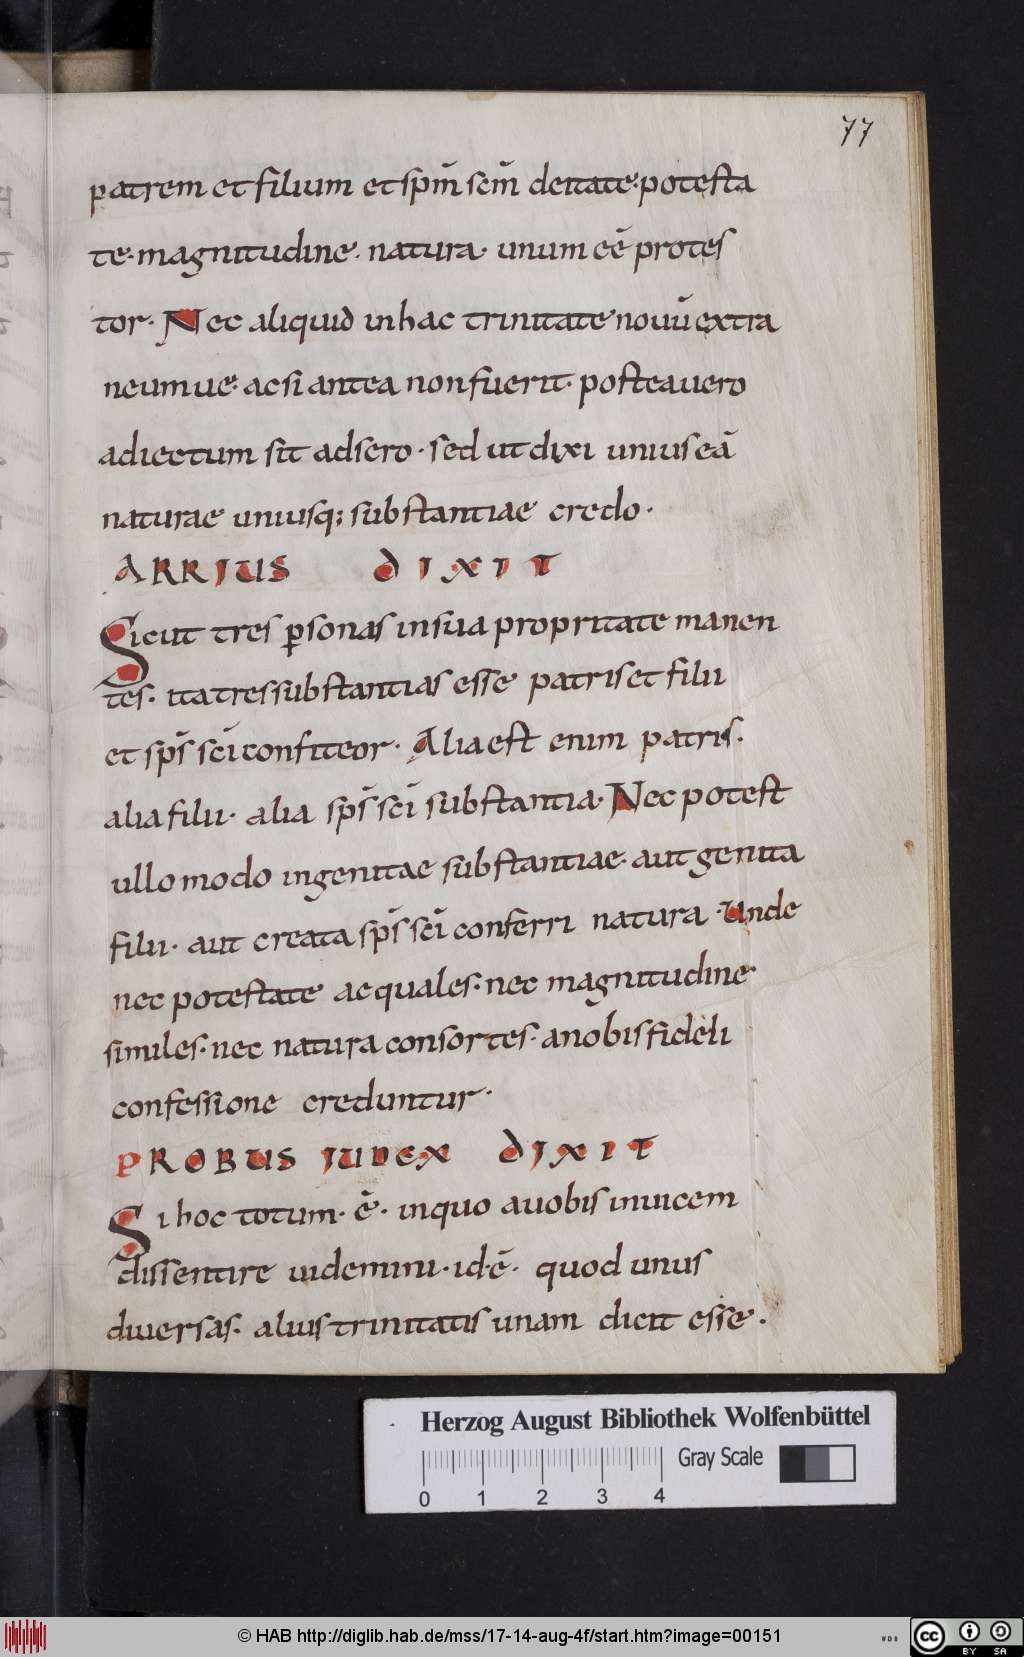 77
patrem et filium et spm̄ scm̄ deitate·potesta
te·magnitudine·natura·unum eē protes
tor·Nec aliquid in hac trinitate nouū extra
neumue·ac si antea non fuerit·postea uero
adiectum sit adsero·sed ut dixi unius eā
naturae uniusq; substantiae credo·
ARRIUS DIXIT
Sicut tres ꝑsonas in sua propritate manen
tes·ita tres substantias esse patris et filii
et sp̄s scī confiteor·Alia est enim patris·
alia filii·alia sp̄s scī substantia·Nec potest
ullo modo ingenitae substantiae·aut genita
filii·aut creata sp̄s scī conferri natura·Unde
nec potestate aequales·nec magnitudine
similes·nec natura consortes·a nobis fideli
confessione creduntur·
PROBUS IUDEX DIXIT
Si hoc totum·ē·in quo a uobis inuicem
dissentire uidemini·id·ē·quod unus
diuersas·alius trinitatis unam dicit esse·
Herzog August Bibliothek Wolfenbüttel
Gray Scale
0 1 2 3 4
© HAB http://diglib.hab.de/mss/17-14-aug-4f/start.htm?image=00151
WDB
cc BY SA